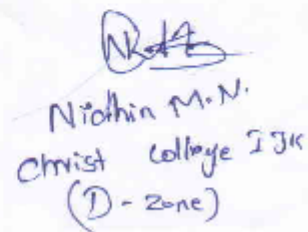 Nidhin M.N.
Christ College IJK
(D-Zone)